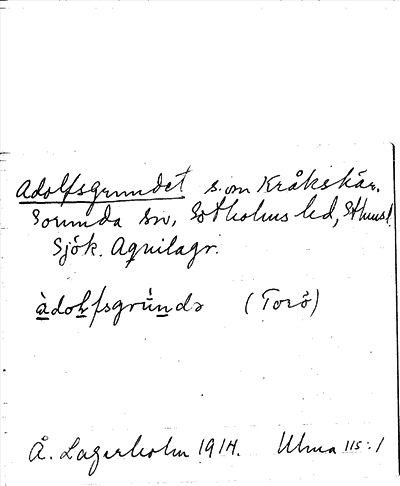 Adolfsgrundet s. om Kråkskär.
Sorunda sn, Sotholms hd, Sthms l.
Sjök. Aquilagr.
àdolfsgrúndə (Torö)
Å. Lagerholm 1914. Ulma 115:1